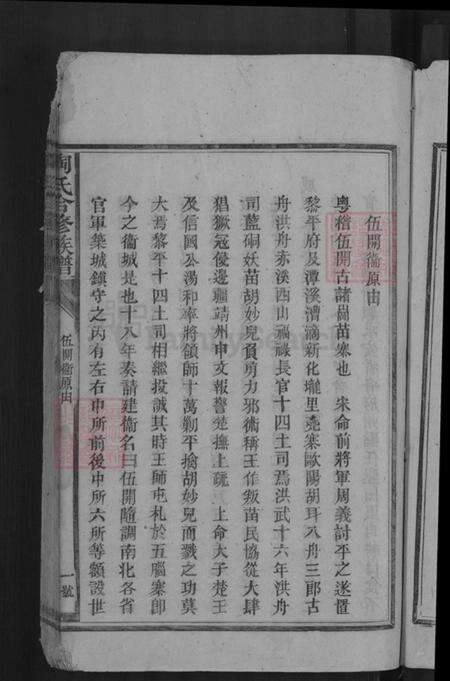 伍開衞原由
粵稽伍開古諸崗苗寨也 朱命前將軍周義討平之遂置
黎平府及潭溪漕滴新化瓏里亮寨歐陽胡耳八舟三郎古
舟洪舟赤溪西山福祿長官十四土司焉洪武十六年洪舟
司藍硐妖苗胡妙兒負勇力邪術稱王作叛苗民協從大肆
猖獗寇優邊疆靖州申文報警楚撫上疏 上命太子楚王
及信國公湯和率將領師十萬勦平擒胡妙兒而戮之功莫
大焉黎平十四土司相繼投誠其時王師屯札於五腦寨即
今之衞城是也十八年奏請建衞名曰伍開隨調南北各省
官軍築城鎮守之內有左右中所前後中所六所等額設世
陶氏合修族譜
伍開衞原由
一號